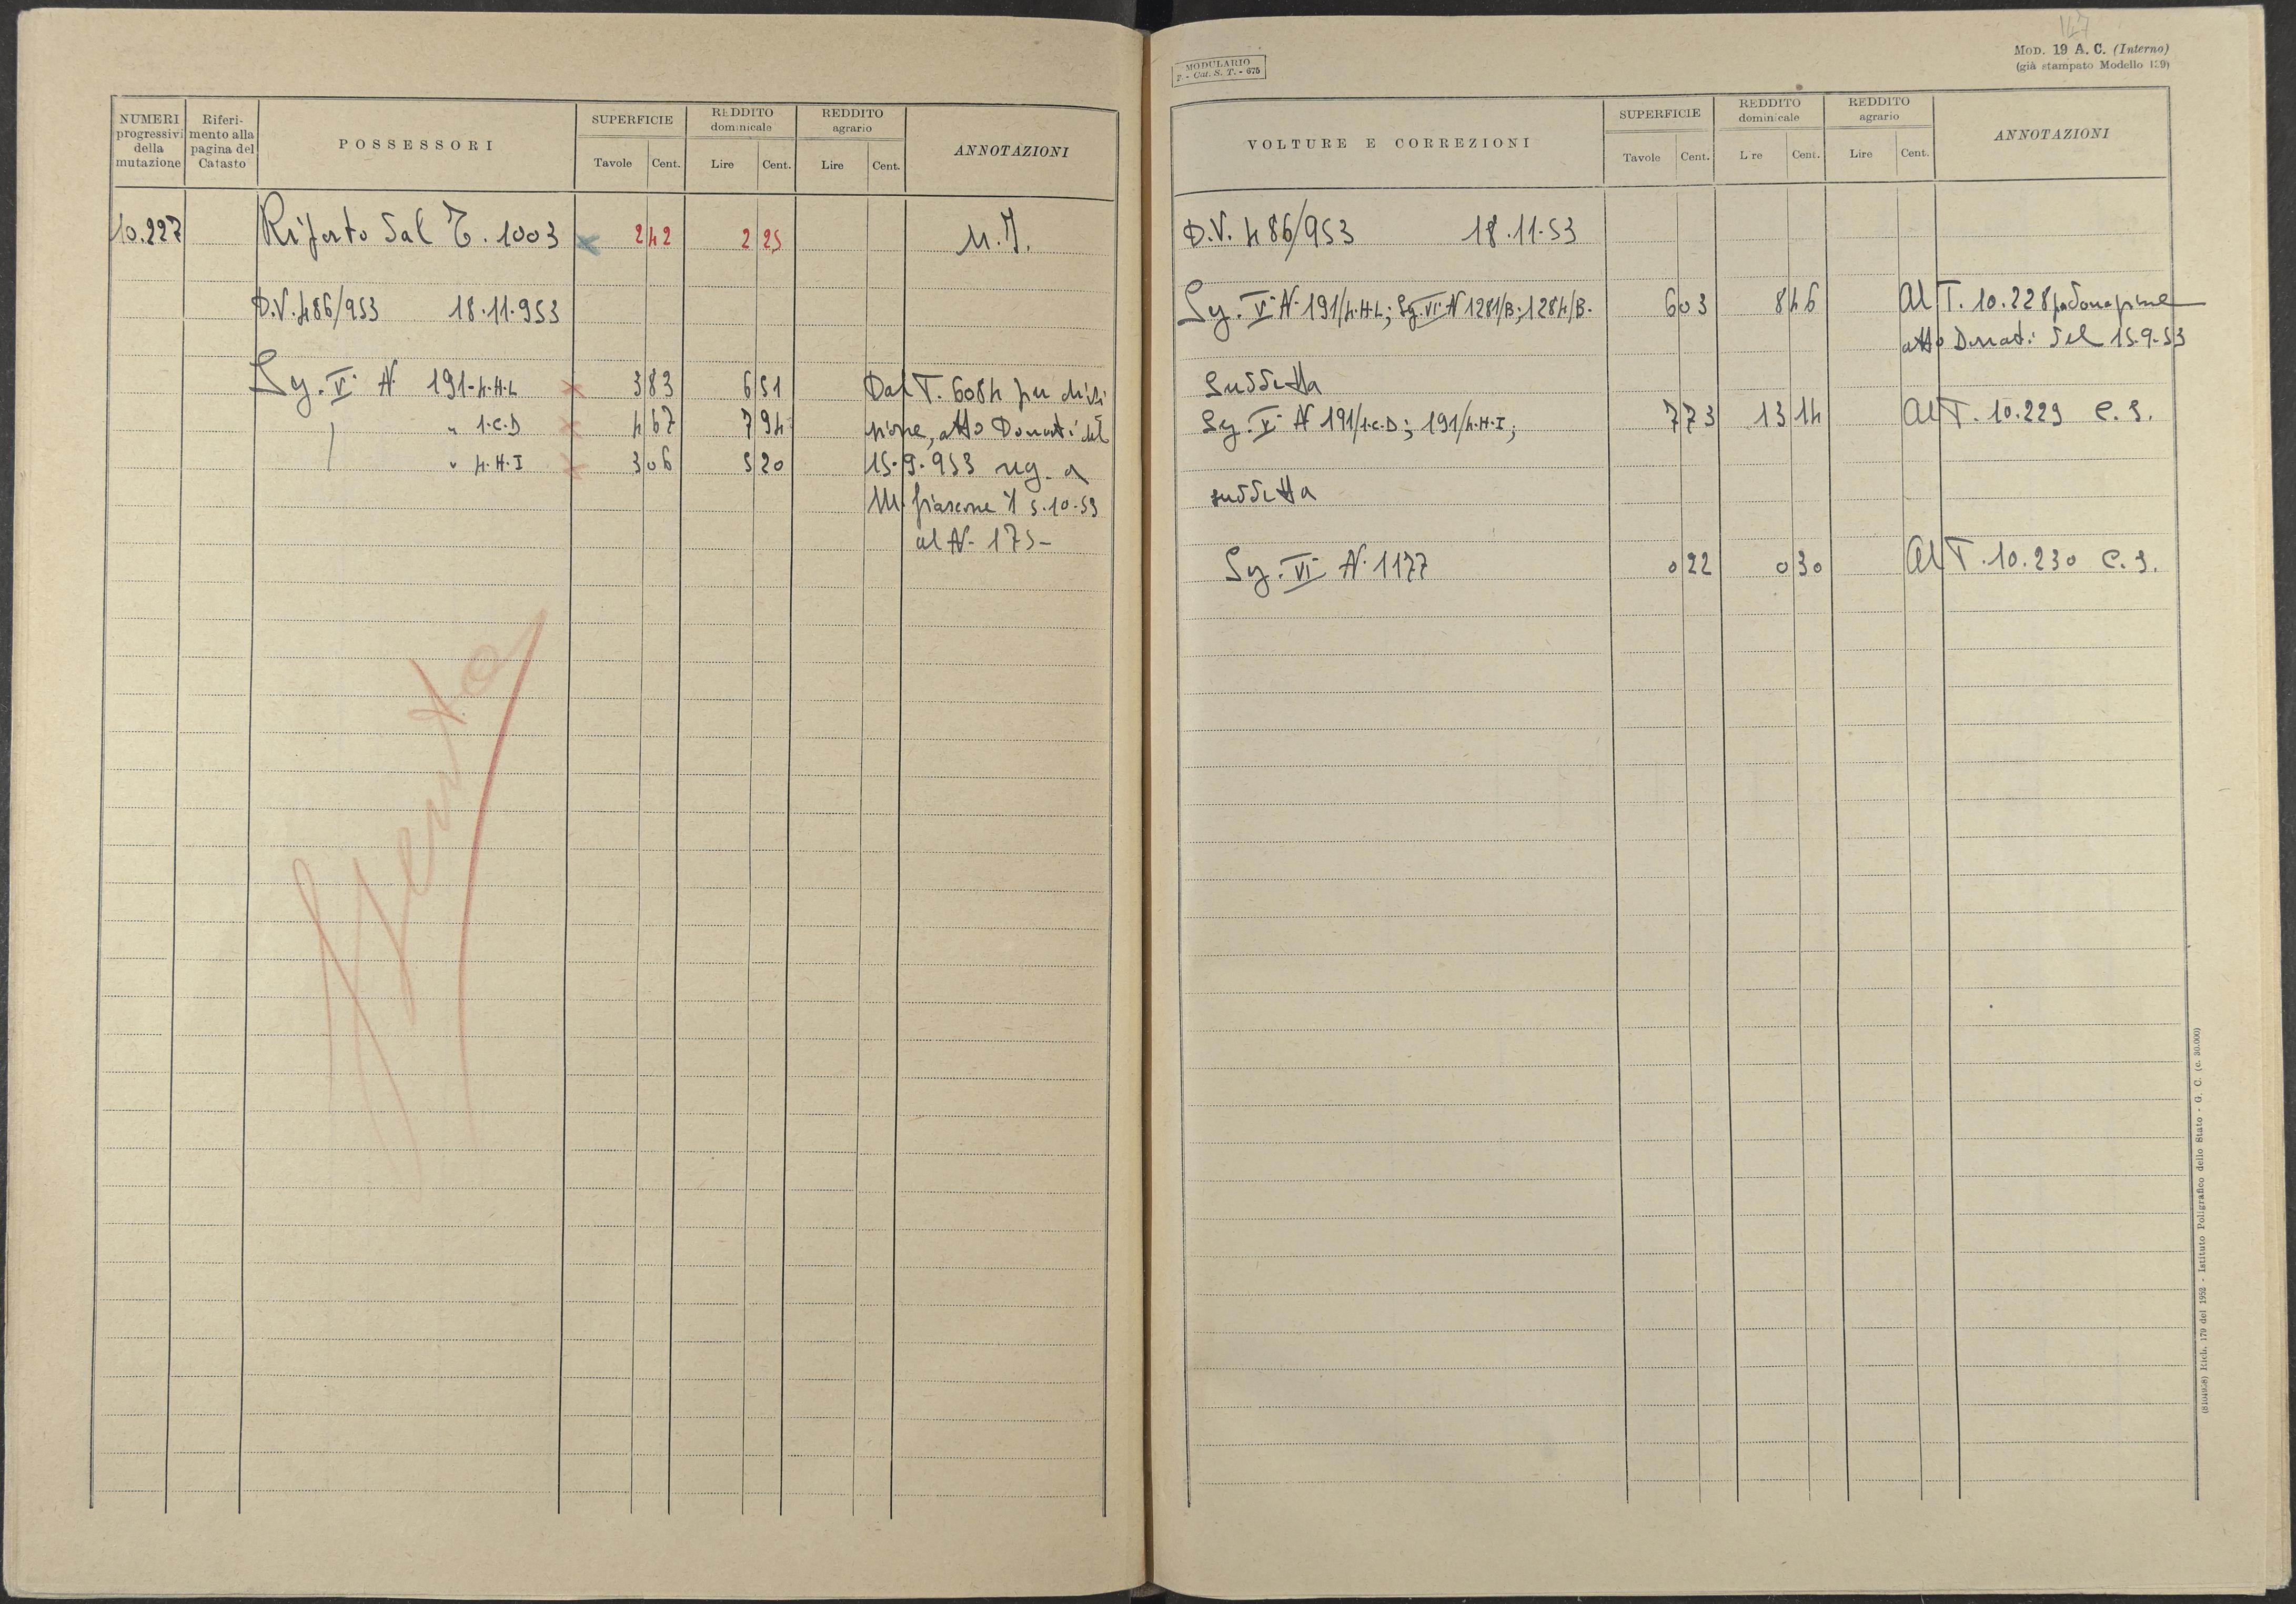 NUMERI progressivi della mutazione
Riferi- mento alla pagina del Catasto
POSSESSORI
SUPERFICIE
Tavole Cent.
REDDITO dominicale
Lire Cent.
REDDITO agrario
Lire Cent.
ANNOTAZIONI
10.227 Riporto dal T. 1003 2 42 2 25 M.I.
D.V. 486/953 18.11.953
Sg. V N. 191-4.H.L 3 83 6 51 Dal T. 6084 per divi
" 1.C.D 4 67 7 94 sione, atto Donati del
" 4.H.I 3 06 5 20 15.9.953 reg. a
M. fiascone il 5.10.53
al N. 175-
Spento
147
MODULARIO
F. - Cat. S. T. - 675
MOD. 19 A. C. (Interno)
(già stampato Modello 139)
VOLTURE E CORREZIONI
SUPERFICIE
Tavole Cent.
REDDITO dominicale
L re Cent.
REDDITO agrario
Lire Cent.
ANNOTAZIONI
D.V. 486/953 18.11.53
Sg. V N. 191/4.H.L; Sg. VI N 1281/B; 1284/B. 6 03 8 46 Al T. 10.228
atto Donati del 15.9.53
Suddetta
Sg. V N 191/1.C.D; 191/4.H.I; 7 73 13 14 Al T. 10.229 C.S.
suddetta
Sg. VI N. 1177 0 22 0 30 Al T. 10.230 C.S.
Rich. 179 del 1952 - Istituto Poligrafico dello Stato - G. C. (c. 30.000)